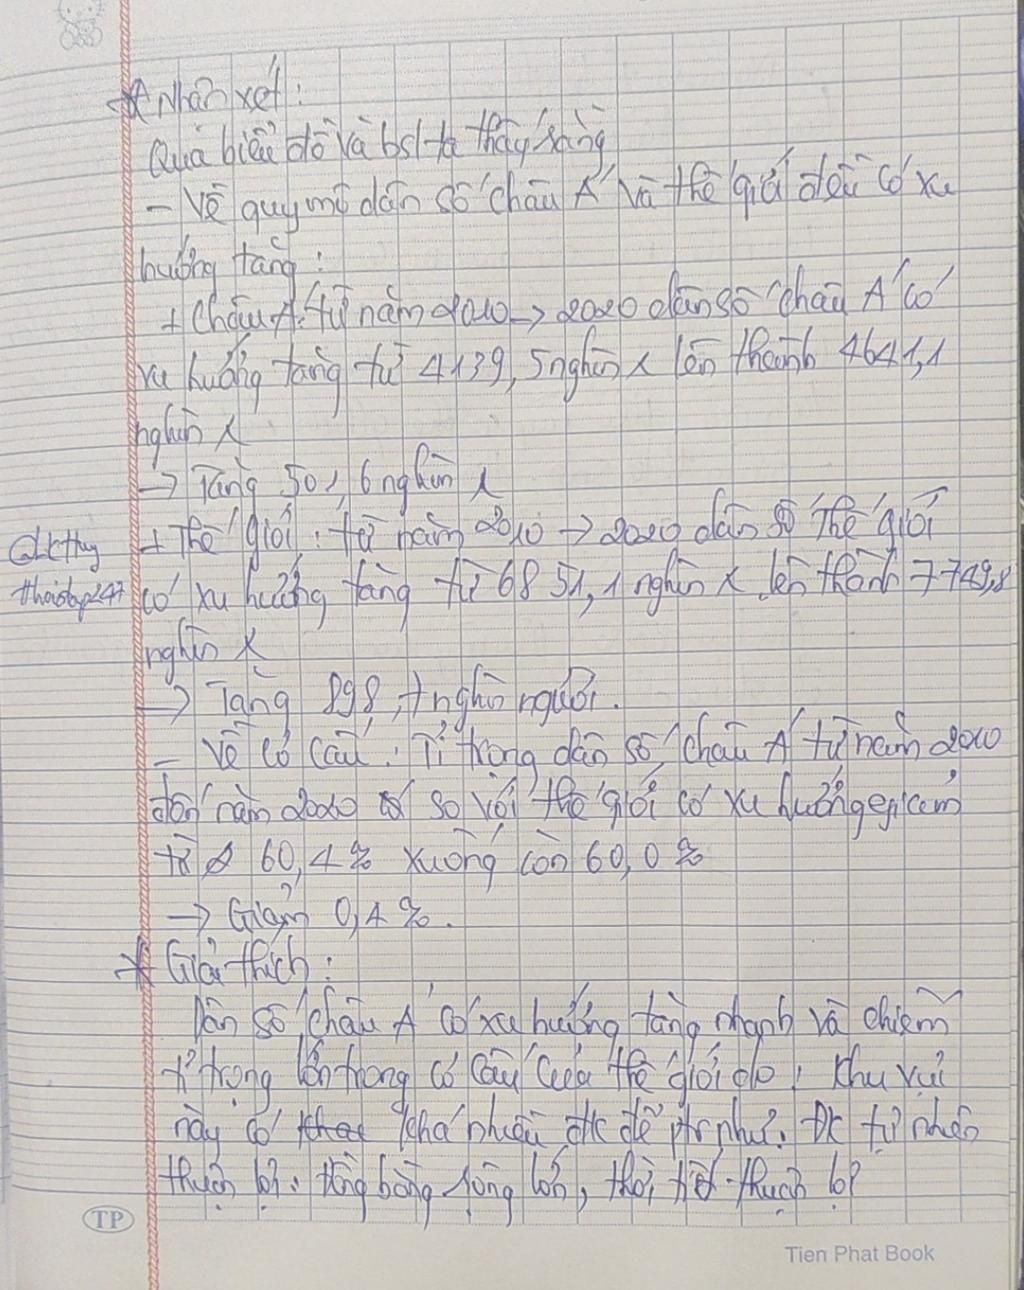 * Nhận xét:
Qua biểu đồ và bsl ta thấy rằng
- Về quy mô dân số châu Á và thế giới đều có xu
hướng tăng:
+ Châu Á: từ năm 2010 -> 2020 dân số châu Á có
xu hướng tăng từ 4139,5 nghìn x lên thành 4641,1
nghìn x
-> Tăng 501,6 nghìn x
+ Thế giới: từ năm 2010 -> 2020 dân số thế giới
có xu hướng tăng từ 6851,1 nghìn x lên thành 7749,8
nghìn x
-> Tăng 898,7 nghìn người.
- Về cơ cấu: Tỉ trọng dân số châu Á từ năm 2010
đến năm 2020 so với thế giới có xu hướng giảm
từ 60,4% xuống còn 60,0%
-> Giảm 0,4%.
* Giải thích:
Dân số châu Á có xu hướng tăng nhanh và chiếm
tỉ trọng lớn trong cơ cấu của thế giới do, khu vực
này có khá nhiều đk để ptr như: Đk tự nhiên
thuận lợi, đồng bằng sông lớn, thời tiết thuận lợi
TP
Tien Phat Book